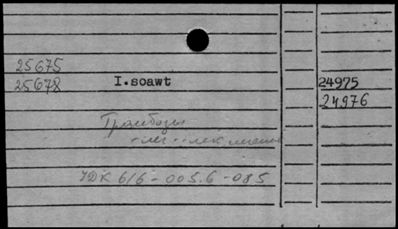 25675
25678 I.soawt 24975
24976
Тромбозы
УДК 616-005.6-085